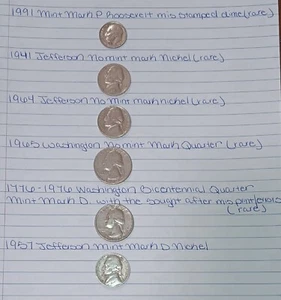 1991 Mint Mark P Roosevelt mis stamped dime (rare)
1941 Jefferson No mint mark Nickel (rare)
1964 Jefferson No Mint mark nickel (rare)
1965 Washington No mint Mark Quarter (rare)
1776-1976 Washington Bicentennial Quarter
Mint Mark D. with the sought after
(rare)
1957 Jefferson Mint Mark D Nickel